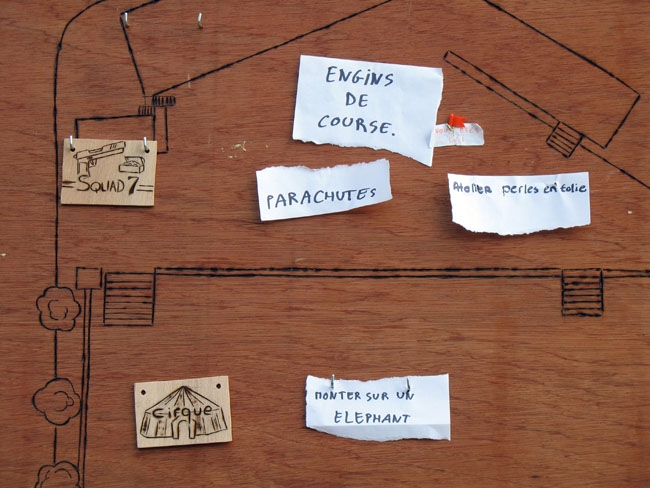 ENGINS
DE
COURSE.
SQUAD 7
PARACHUTES
Atelier perles en folie
CIRQUE
MONTER SUR UN
ELEPHANT